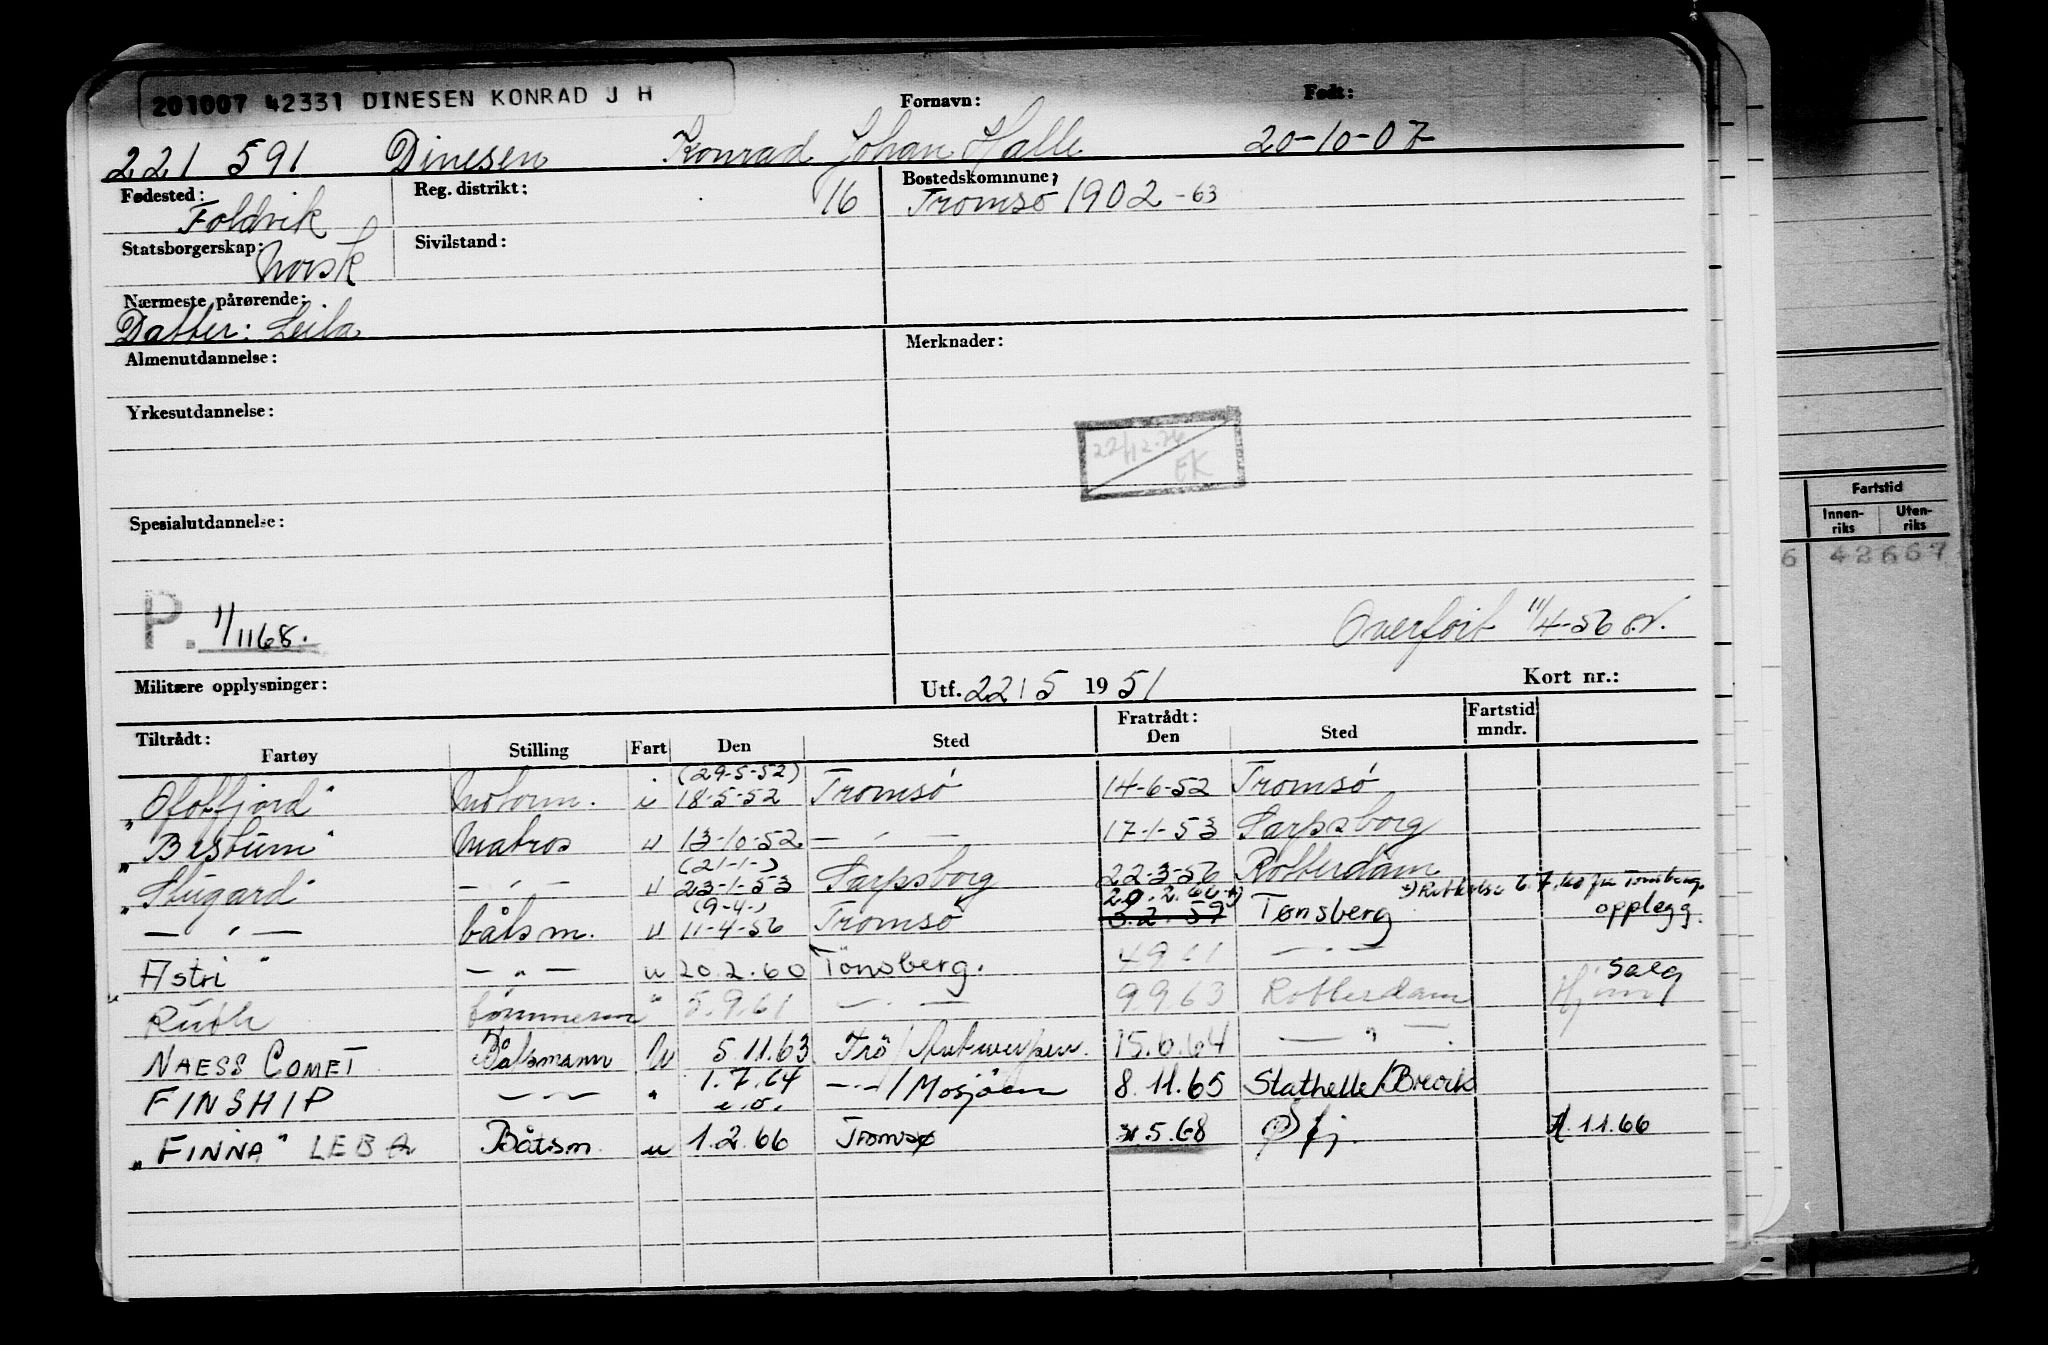 201007 42331 DINESEN KONRAD J H
Fornavn: Født:
221 591 Dinesen Konrad Johan Halle 20-10-07
Fødested: Reg. distrikt: 16 Bostedskommune:
Foldvik Tromsö 1902-63
Statsborgerskap: Sivilstand:
Norsk
Nærmeste pårørende:
Datter: Leila
Almenutdannelse: Merknader:
Yrkesutdannelse:
22/12-76
EK
Spesialutdannelse:
Fartstid
Innen-riks Uten-riks
6 42667
P. 11/11 68.
Overfört 11/4-56
Militære opplysninger: Utf. 22/5 1951 Kort nr.:
Tiltrådt: Fratrådt: Fartstid mndr.
Fartøy Stilling Fart Den Sted Den Sted
(29-5-52)
"Ofotfjord" Motorm. i 18-5-52 Tromsö 14-6-52 Tromsö
"Bestum" Matros u 13-10-52 — " — 17-1-53 Sarpsborg
(21-1-)
"Stugard" — " — u 23-1-53 Sarpsborg 22-3-56 Rotterdam
(9-4-) 20.2.60 6.7.60 fra Tønsberg.
— " — båtsm. u 11-4-56 Tromsö 3.2.59 Tønsberg opplegg.
"Astri" — " — u 20.2.60 Tönsberg. 4 9 61 — " — salg
Ruth tömmerm " 5.9.61 — " — 9 9 63 Rotterdam
NAESS COMET Båtsmann u 5.11.63 Trö/Antwerpen. 15.6.64 — " —
FINSHIP — " — " 1.7.64 — " — / Mosjöen 8.11.65 Stathelle/Brevik
"FINNA" LEBA Båtsm. u 1.2.66 Tromsø 5.68 11.66